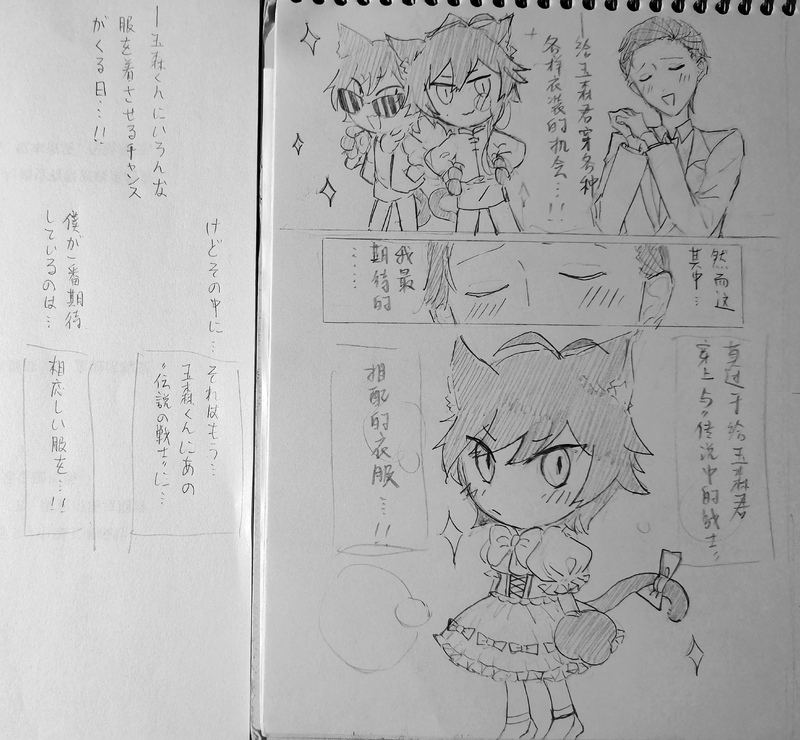 給玉森君穿各种
各样衣装的机会…!!
然而这
其中…
我最
期待的
……
莫过于给玉森君
穿上与"传说中的战士"
相配的衣服…!!
けどその中に…それはもう…
玉森くんにあの
"伝説の戦士"に…
ー玉森くんにいろんな
服を着させるチャンス
がくる日…!!
僕が一番期待
しているのは…
相応しい服を…!!